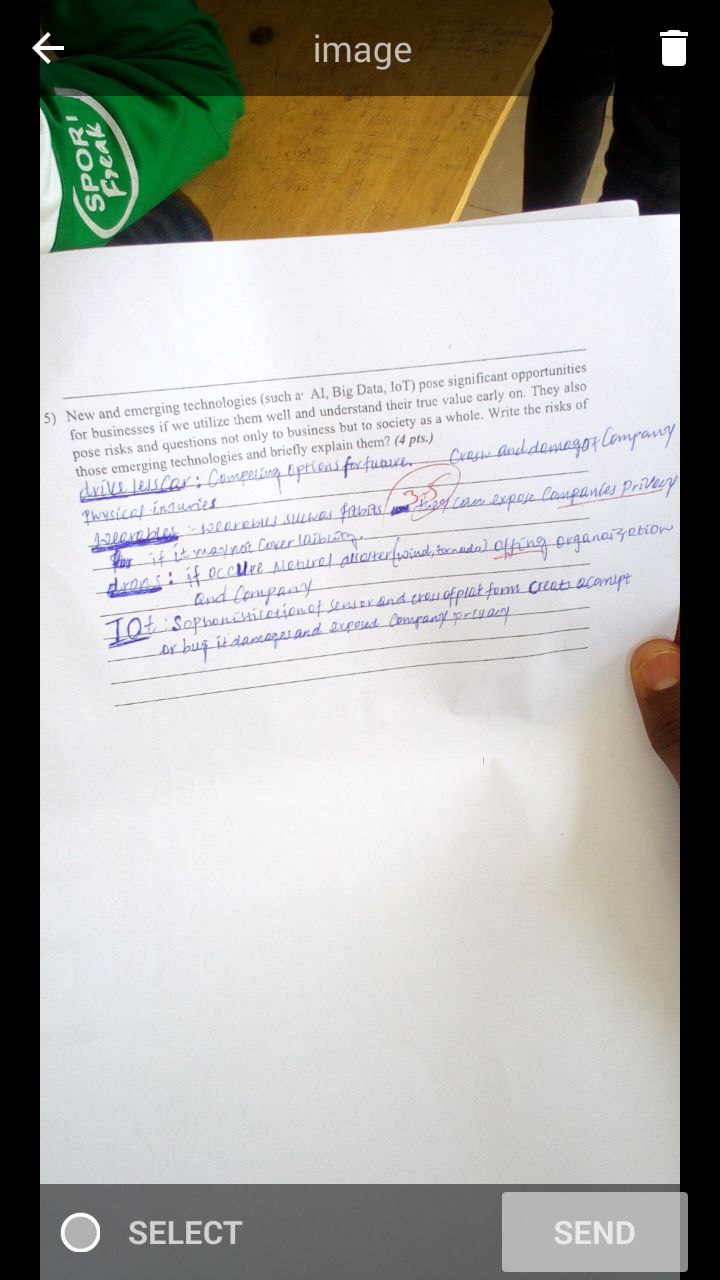 image
SPORT
Freak
5) New and emerging technologies (such a AI, Big Data, IoT) pose significant opportunities
for businesses if we utilize them well and understand their true value early on. They also
pose risks and questions not only to business but to society as a whole. Write the risks of
those emerging technologies and briefly explain them? (4 pts.)
drive less car: Competing options for future. Crash and damag of Company
Physical injuries
3.5
wearables :- wearables such as fitbits can expose Companies privacy
if it may not cover
drons: if occure Natural disaster (wind, tornado) offing organaization
and Company
IOt: Sophonistication of sensor and cross of plat form creats
or bug it damages and exposed Company privacy
SELECT
SEND